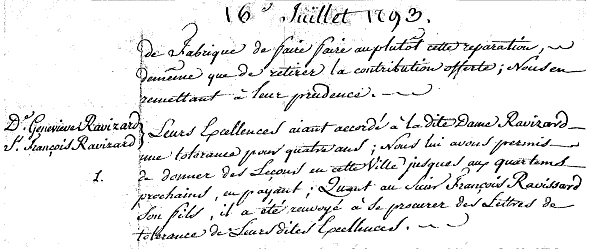 16e Juillet 1793.
de Fabrique de faire faire au plutôt cette reparation,
demême que de retirer la contribution offerte; Nous en
remettant à leur prudence.
De. Genevieve Ravizard
Sr. François Ravizard
1.
Leurs Excellences aiant accordé à la dite Dame Ravizard
une tolerance pour quatre ans; Nous lui avons permis
de donner des Leçons en cette Ville jusques aux quartems
prochains, en payant; Quant au Sieur François Ravissard
son fils, il a été renvoyé à se procurer des Lettres de
tolerance de Leurs dites Excellences.